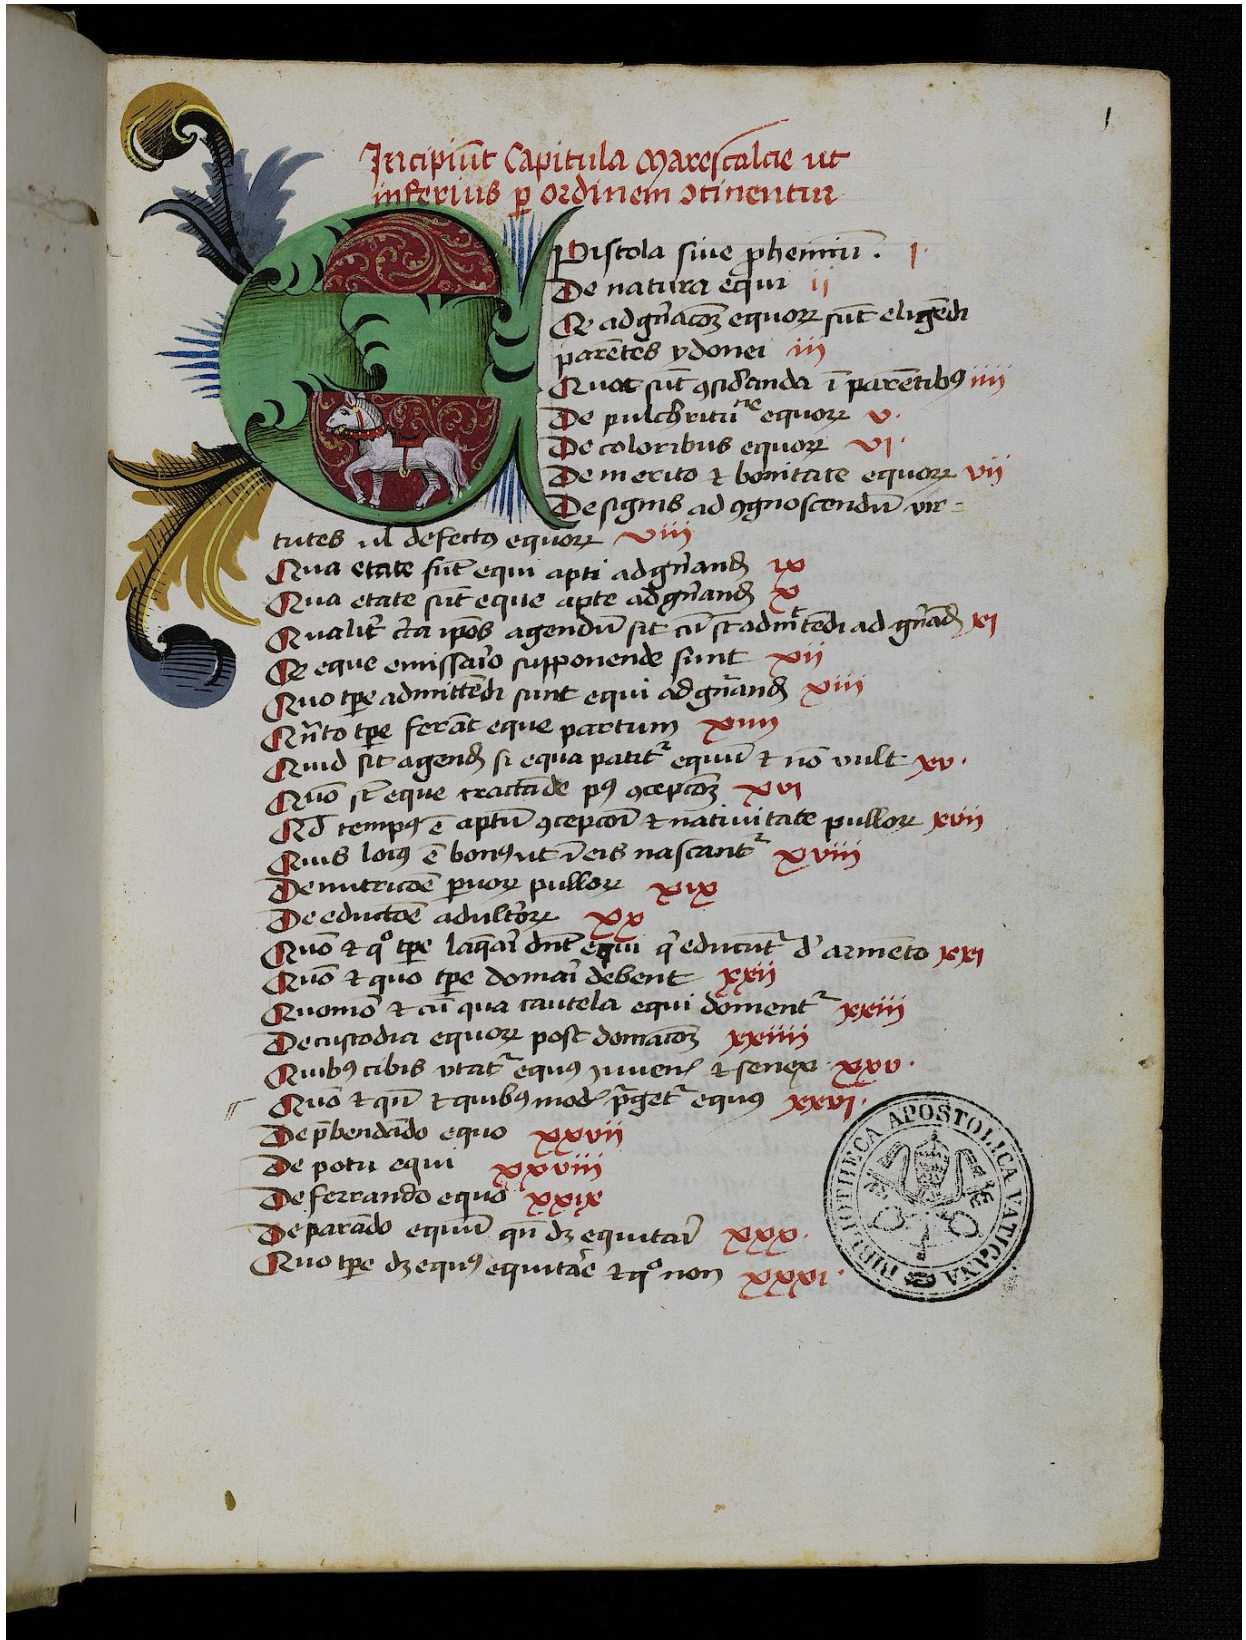 1
Incipiu̅t Capitula Marescalcie ut
inferius ꝑ ordinem ↄtinentur
EPistola siue ꝓhemiu̅. I.
De natura equi ii
Qꝛ ad gn̅aco̅ꝫ equoꝝ su̅t elige̅di
pare̅tes ydonei iii
Quot su̅t ꝯsid̕anda i̅ pare̅tibꝰ iiii
De pulch̕ritu̅ꝛe equoꝝ v.
De coloribus equoꝝ vi.
De merito ⁊ bonitate equoꝝ vii
De signis ad ꝯgnoscendu̅ vir-
tutes ul defectꝰ equoꝝ viii
Qua etate su̅t equi apti ad gn̅and ix
Qua etate su̅t eque apte ad gn̅and x
Qualit̕ agendu̅ sit cu̅ ad gn̅and xi
Qꝛ eque emissa̕io supponende sunt xii
Quo tꝑe admitte̅di sunt equi ad gn̅and xiii
Qn̅to tꝑe fera̅t eque partum xiiii
Quid sit agend si equa patit᷑ equu̅ ⁊ no̅ vult xv.
Quo̅ eque tracta̅de pꝰ ꝯcepco̅ꝫ xvi
Qd̅ tempꝰ e̅ aptu̅ ꝯcepco̅i ⁊ nativitate pulloꝝ xvii
Quis locꝰ e̅ bonꝰ ut i̅ eis nascant᷑ xviii
De nutrico̅e ꝑuoꝝ pulloꝝ xix
De educto̅e adultoꝝ xx
Quo̅ ⁊ qͦ tꝑe laq̅ai̅ dn̅t equi q̕ educu̅t᷑ d̕ arme̅to xxi
Quo̅ ⁊ quo tꝑe domai̅ debent xxii
Quomo̅ ⁊ cu̅ qua cautela equi doment᷑ xxiii
De custodia equoꝝ post domaco̅ꝫ xxiiii
Quibꝰ cibis utat᷑ equꝰ iuuen̕ ⁊ senex xxv.
Quo̅ ⁊ qn̅ ⁊ quibꝰ mod̕ equꝰ xxvi.
De p̅benda̅do equo xxvii
De potu equi xxviii
De ferrando equo xxix
De para̅do equu̅ qn̅ dꝫ equitai̅ xxx.
Quo tꝑe dꝫ equꝰ equita̕e ⁊ qͦ non xxxi.
BIBLIOTHECA APOSTOLICA VATICANA